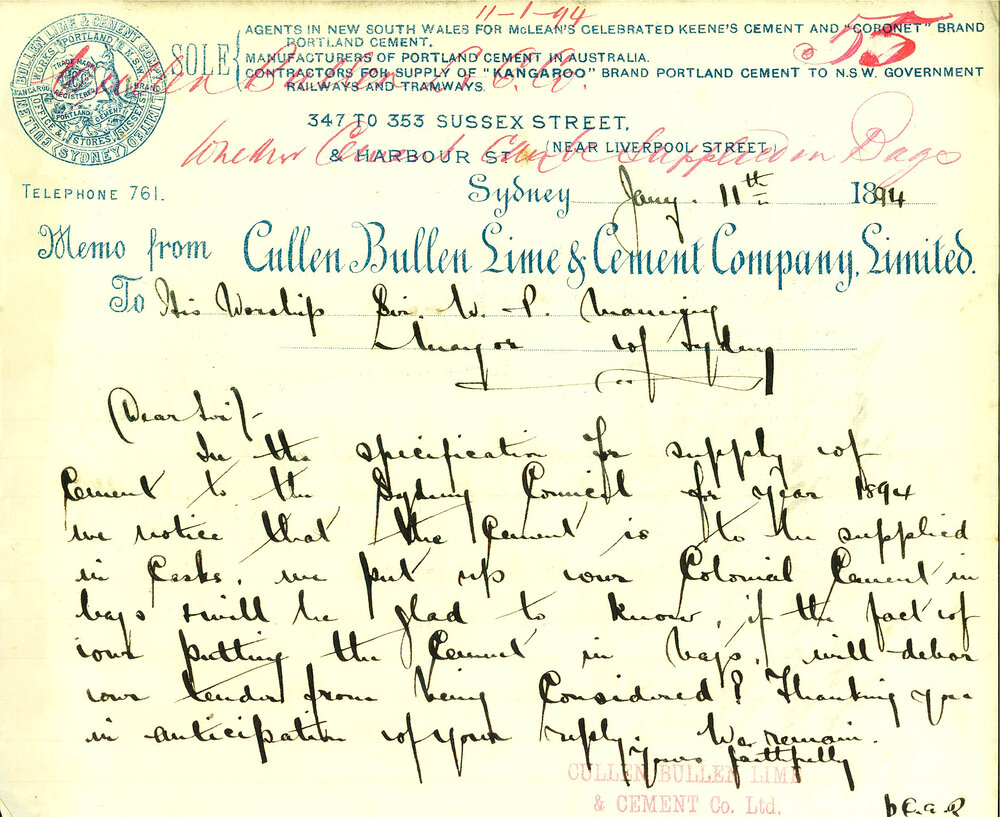 11-1-94
55
CULLEN BULLEN LIME & CEMENT COMPANY LIMITED
WORKS PORTLAND N.S.W.
TRADE MARK
REGISTERED
KANGAROO BRAND
PORTLAND CEMENT
OFFICE & STORES SUSSEX ST
(SYDNEY)
SOLE
AGENTS IN NEW SOUTH WALES FOR McLEAN'S CELEBRATED KEENE'S CEMENT AND "CORONET" BRAND
PORTLAND CEMENT.
MANUFACTURERS OF PORTLAND CEMENT IN AUSTRALIA.
CONTRACTORS FOR SUPPLY OF "KANGAROO" BRAND PORTLAND CEMENT TO N.S.W. GOVERNMENT
RAILWAYS AND TRAMWAYS.
Cullen Bullen L. C. Co.
347 TO 353 SUSSEX STREET,
(NEAR LIVERPOOL STREET,)
& HARBOUR ST
Whether Cement can be Supplied in Bags
TELEPHONE 761.
Sydney Jany. 11th 1894
Memo from Cullen Bullen Lime & Cement Company, Limited.
To His Worship Sir. W. P. Manning
Mayor of Sydney
(Dear Sir)-
In the specification for supply of
Cement to the Sydney Council for year 1894
we notice that the Cement is to the supplied
in Casks, we put up our Colonial Cement in
bags & will be glad to know, if the fact of
our putting the Cement in bags, will debar
our tender from being Considered? Thanking you
in anticipation of your reply. We remain.
Yours faithfully
CULLEN BULLEN LIME
& CEMENT Co. Ltd.